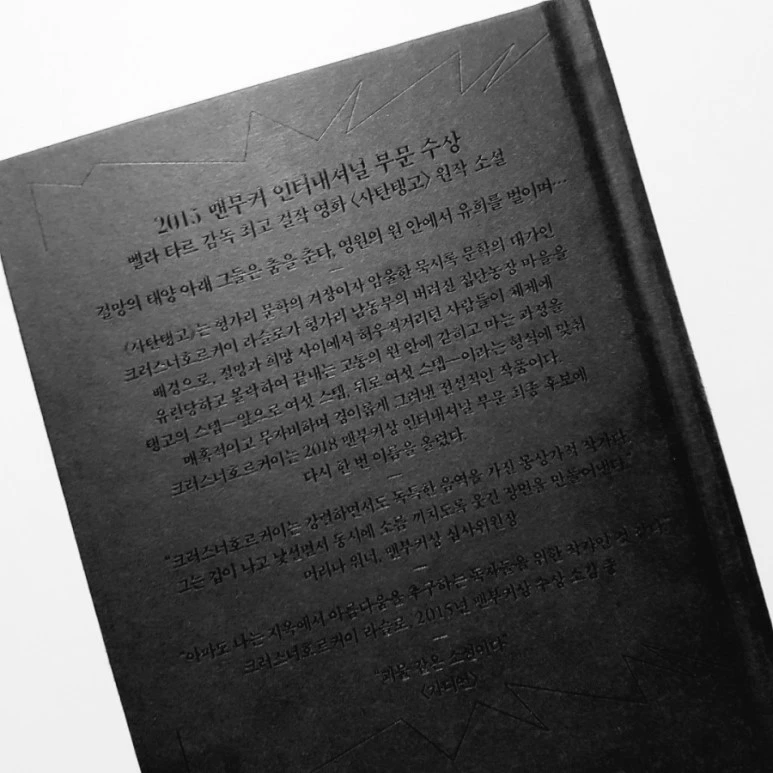 2015 맨부커 인터내셔널 부문 수상
벨라 타르 감독 최고 걸작 영화 〈사탄탱고〉 원작 소설
절망의 태양 아래 그들은 춤을 춘다, 영원의 원 안에서 유희를 벌이며…
《사탄탱고》는 헝가리 문학의 거장이자 암울한 묵시록 문학의 대가인
크러스너호르커이 라슬로가 헝가리 남동부의 버려진 집단농장 마을을
배경으로, 절망과 희망 사이에서 허우적거리던 사람들이 재체에
유린당하고 몰락하여 끝내는 고통의 원 안에 갇히고 마는 과정을
탱고의 스텝—앞으로 여섯 스텝, 뒤로 여섯 스텝—이라는 형식에 맞춰
매혹적이고 무자비하며 경이롭게 그려낸 전설적인 작품이다.
크러스너호르커이는 2018 맨부커상 인터내셔널 부문 최종 후보에
다시 한 번 이름을 올렸다.
“크러스너호르커이는 강렬하면서도 독특한 음역을 가진 몽상가적 작가다.
그는 겁이 나고 낯설면서 동시에 소름 끼치도록 웃긴 장면을 만들어낸다.”
머리나 워너, 맨부커상 심사위원장
“아마도 나는 지옥에서 아름다움을 추구하는 독자들을 위한 작가인 것 같다.”
크러스너호르커이 라슬로, 2015년 맨부커상 수상 소감 중
“괴물 같은 소설이다”
〈가디언〉